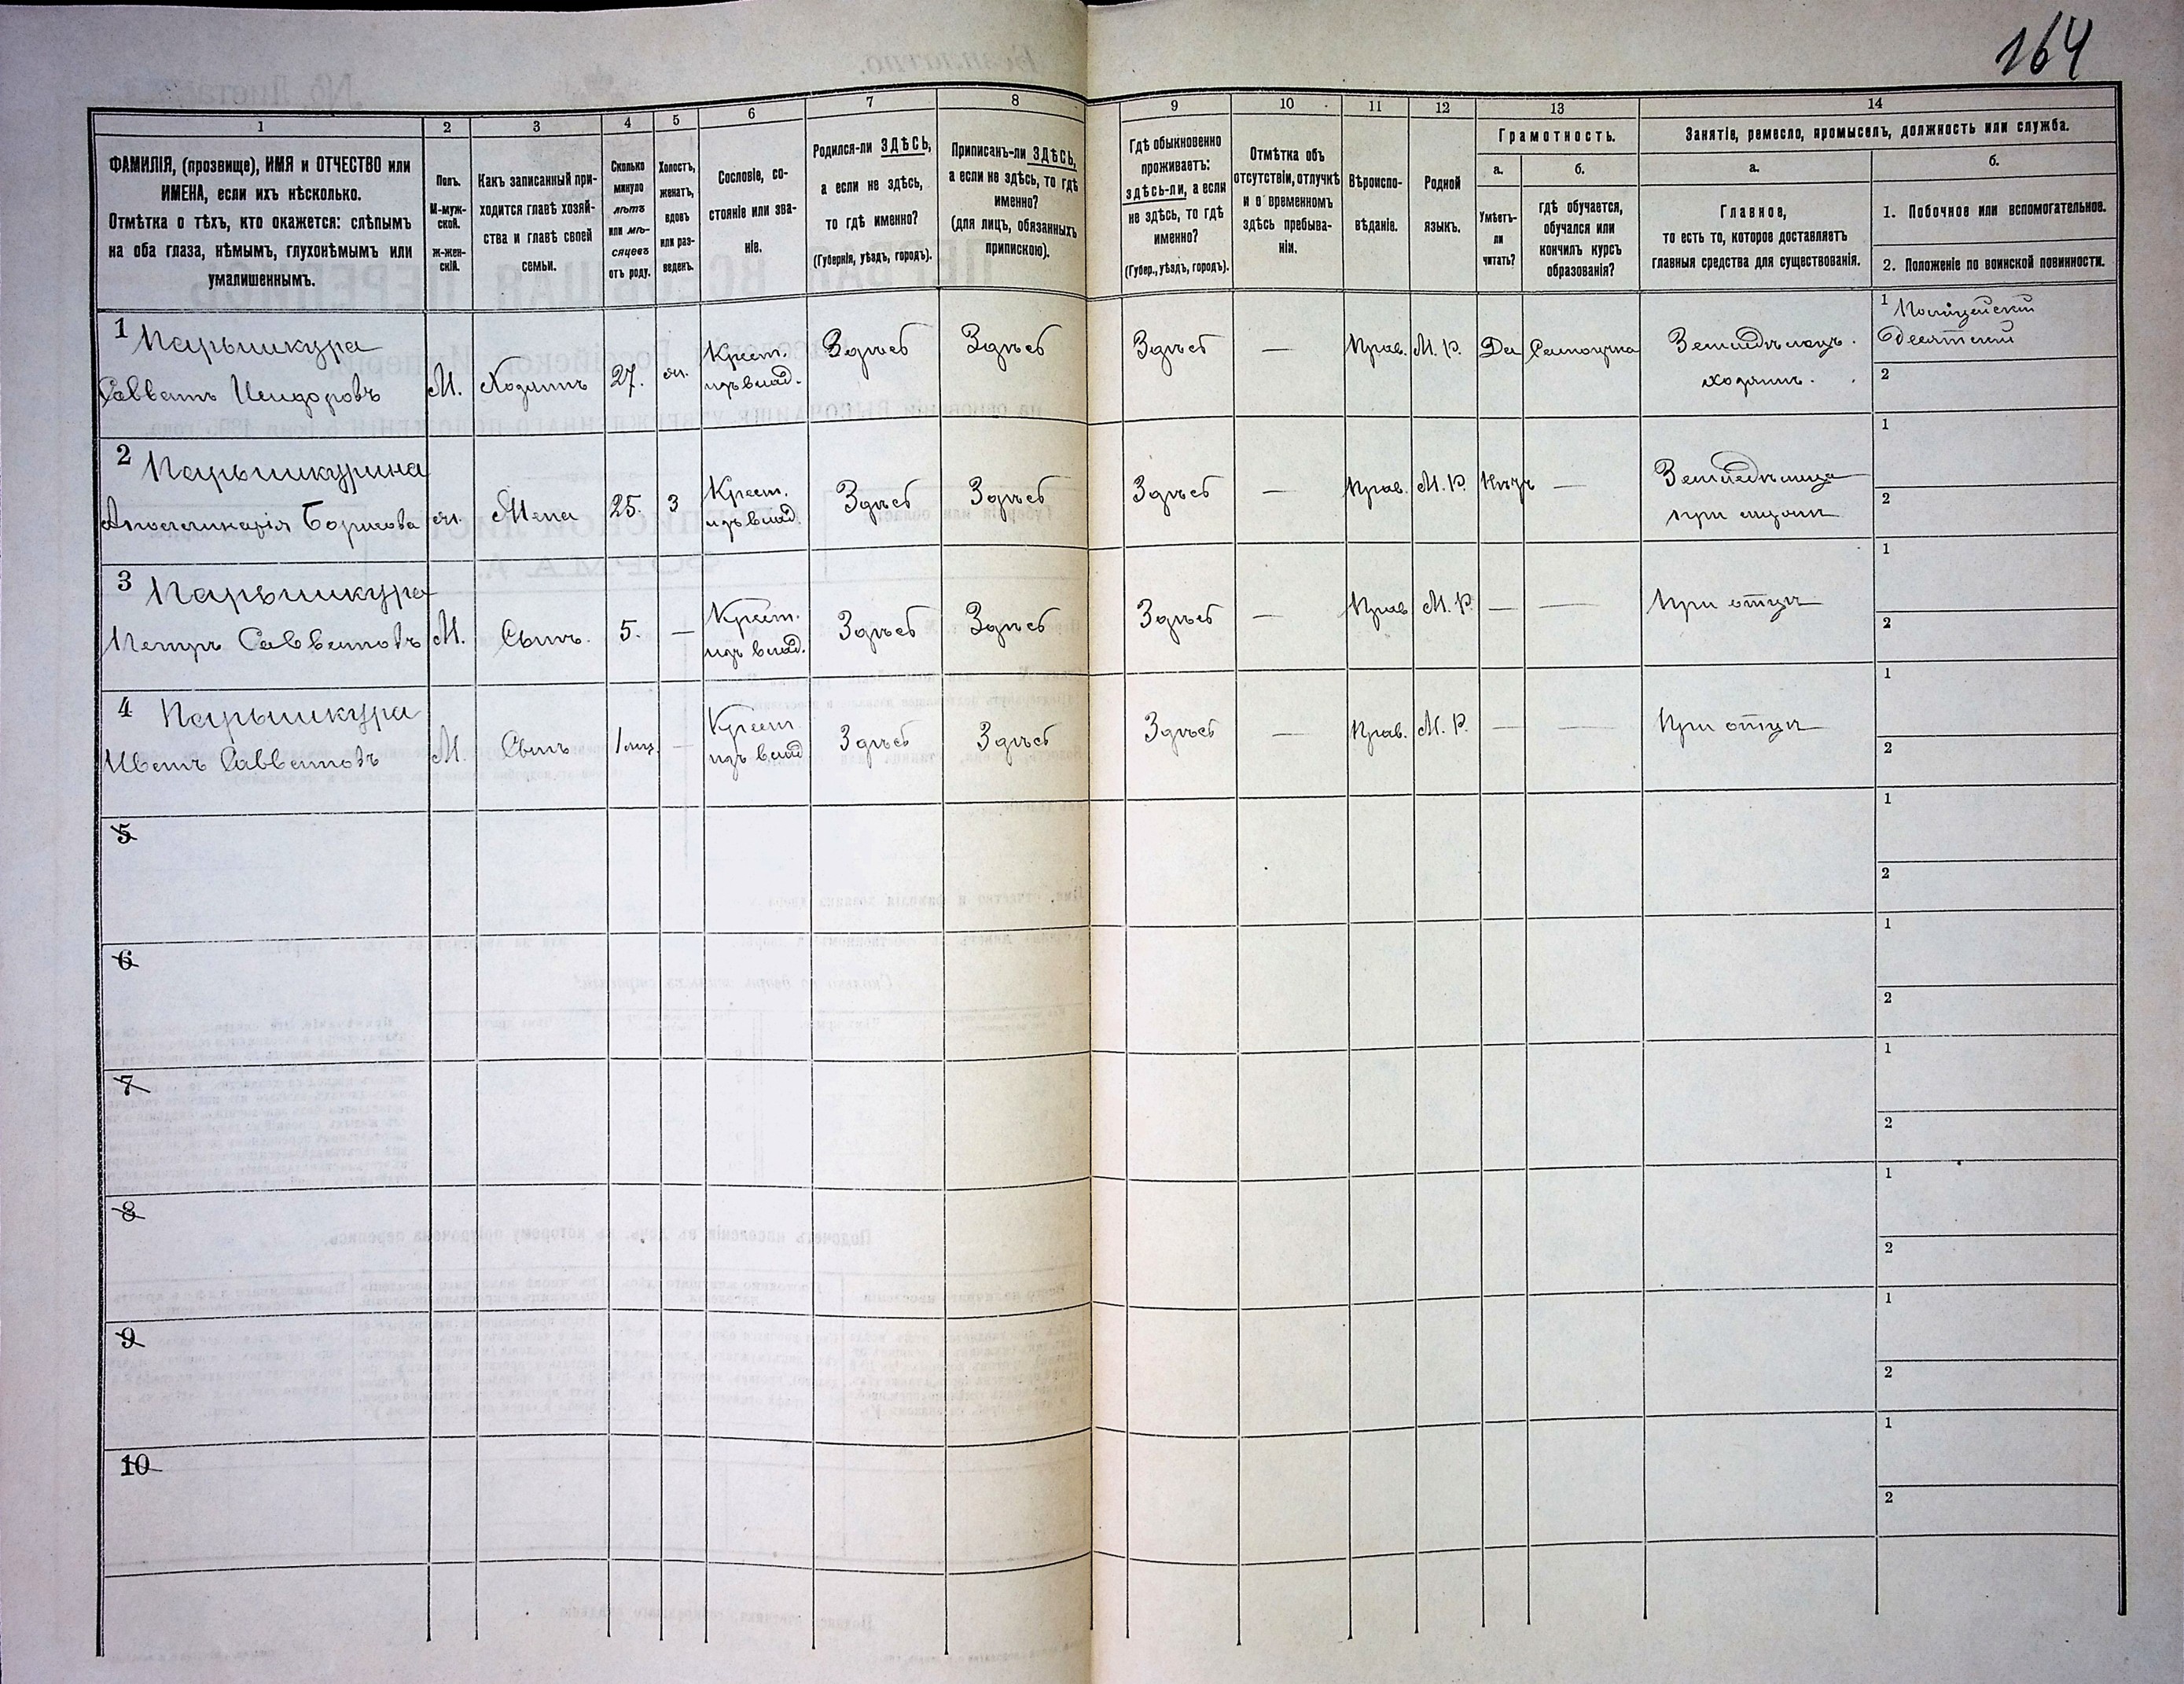 164
1
2
3
4
5
6
7
8
9
10
11
12
13
14
ФАМИЛІЯ, (прозвище), ИМЯ и ОТЧЕСТВО или
ИМЕНА, если ихъ нѣсколько.
Отмѣтка о тѣхъ, кто окажется: слѣпымъ
на оба глаза, нѣмымъ, глухонѣмымъ или
умалишеннымъ.
Полъ.
М-муж-
ской.
ж-жен-
скій.
Какъ записанный при-
ходится главѣ хозяй-
ства и главѣ своей
семьи.
Сколько
минуло
лѣтъ
или мѣ-
сяцевъ
отъ роду.
Холостъ,
женатъ,
вдовъ
или раз-
веденъ.
Сословіе, со-
стояніе или зва-
ніе.
Родился-ли ЗДѢСЬ,
а если не здѣсь,
то гдѣ именно?
(Губернія, уѣздъ, городъ).
Приписанъ-ли ЗДѢСЬ,
а если не здѣсь, то гдѣ
именно?
(для лицъ, обязанныхъ
припискою).
Гдѣ обыкновенно
проживаетъ:
здѣсь-ли, а если
не здѣсь, то гдѣ
именно?
(Губер., уѣздъ, городъ).
Отмѣтка объ
отсутствіи, отлучкѣ
и о временномъ
здѣсь пребыва-
ніи.
Вѣроиспо-
вѣданіе.
Родной
языкъ.
Грамотность.
а.
Умѣетъ-
ли
читать?
б.
гдѣ обучается,
обучался или
кончилъ курсъ
образованія?
Занятіе, ремесло, промыселъ, должность или служба.
а.
Главное,
то есть то, которое доставляетъ
главныя средства для существованія.
б.
1. Побочное или вспомогательное.
2. Положеніе по воинской повинности.
1 Парышкура
Савватъ Исидоровъ
М. Хозяинъ 27. ж. Крест.
изъ влад. Здѣсь Здѣсь Здѣсь — Прав. М. Р. Да Самоучка Земледѣлецъ.
хозяинъ.
1 Полицейскій
десятскій
2
2 Парышкурина
Борисова ж. Жена 25. З Крест.
изъ влад. Здѣсь Здѣсь Здѣсь — Прав. М. Р. Нѣтъ — Земледѣлица
при мужѣ
1
2
3 Парышкура
Петръ Савватовъ М. Сынъ. 5. — Крест.
изъ влад. Здѣсь Здѣсь Здѣсь — Прав. М. Р. — — При отцѣ
1
2
4 Парышкура
Иванъ Савватовъ М. Сынъ 1 мѣс. — Крест.
изъ влад. Здѣсь Здѣсь Здѣсь — Прав. М. Р. — — При отцѣ
1
2
5
1
2
6
1
2
7
1
2
8
1
2
9
1
2
10
1
2